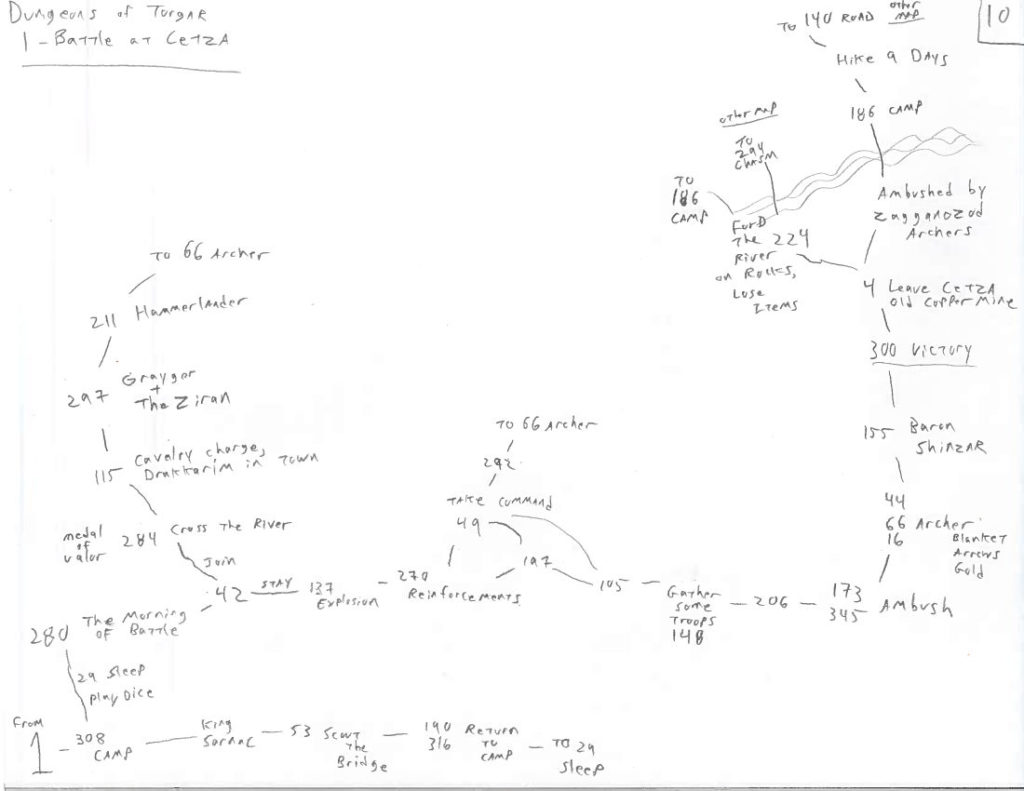 Dungeons of Torgar
1 - Battle at Cetza
10
To 140 Road other map
Hike 9 Days
186 Camp
other map
To
294
Chasm
To
186
Camp
Ambushed by
Zagganozod
Archers
Ford
The 224
River
on Rocks,
Lose
Items
4 Leave Cetza
old Copper Mine
300 Victory
155 Baron
Shinzar
44
66 Archer
16 Blanket
Arrows
Gold
To 66 Archer
211 Hammerlander
297 Grayger
+
The Ziran
115 Cavalry charge,
Drakkarim in Town
medal
of
valor
284 Cross The River
Join
42 Stay 137
Explosion
270
Reinforcements
To 66 Archer
292
Take Command
49
197
105
Gather
Some
Troops
148
206
173
345 Ambush
280 The Morning
of Battle
29 Sleep
Play Dice
From
1
308
Camp
King
Sarnac
53 Scout
The
Bridge
190 Return
316 To
Camp
To 29
Sleep